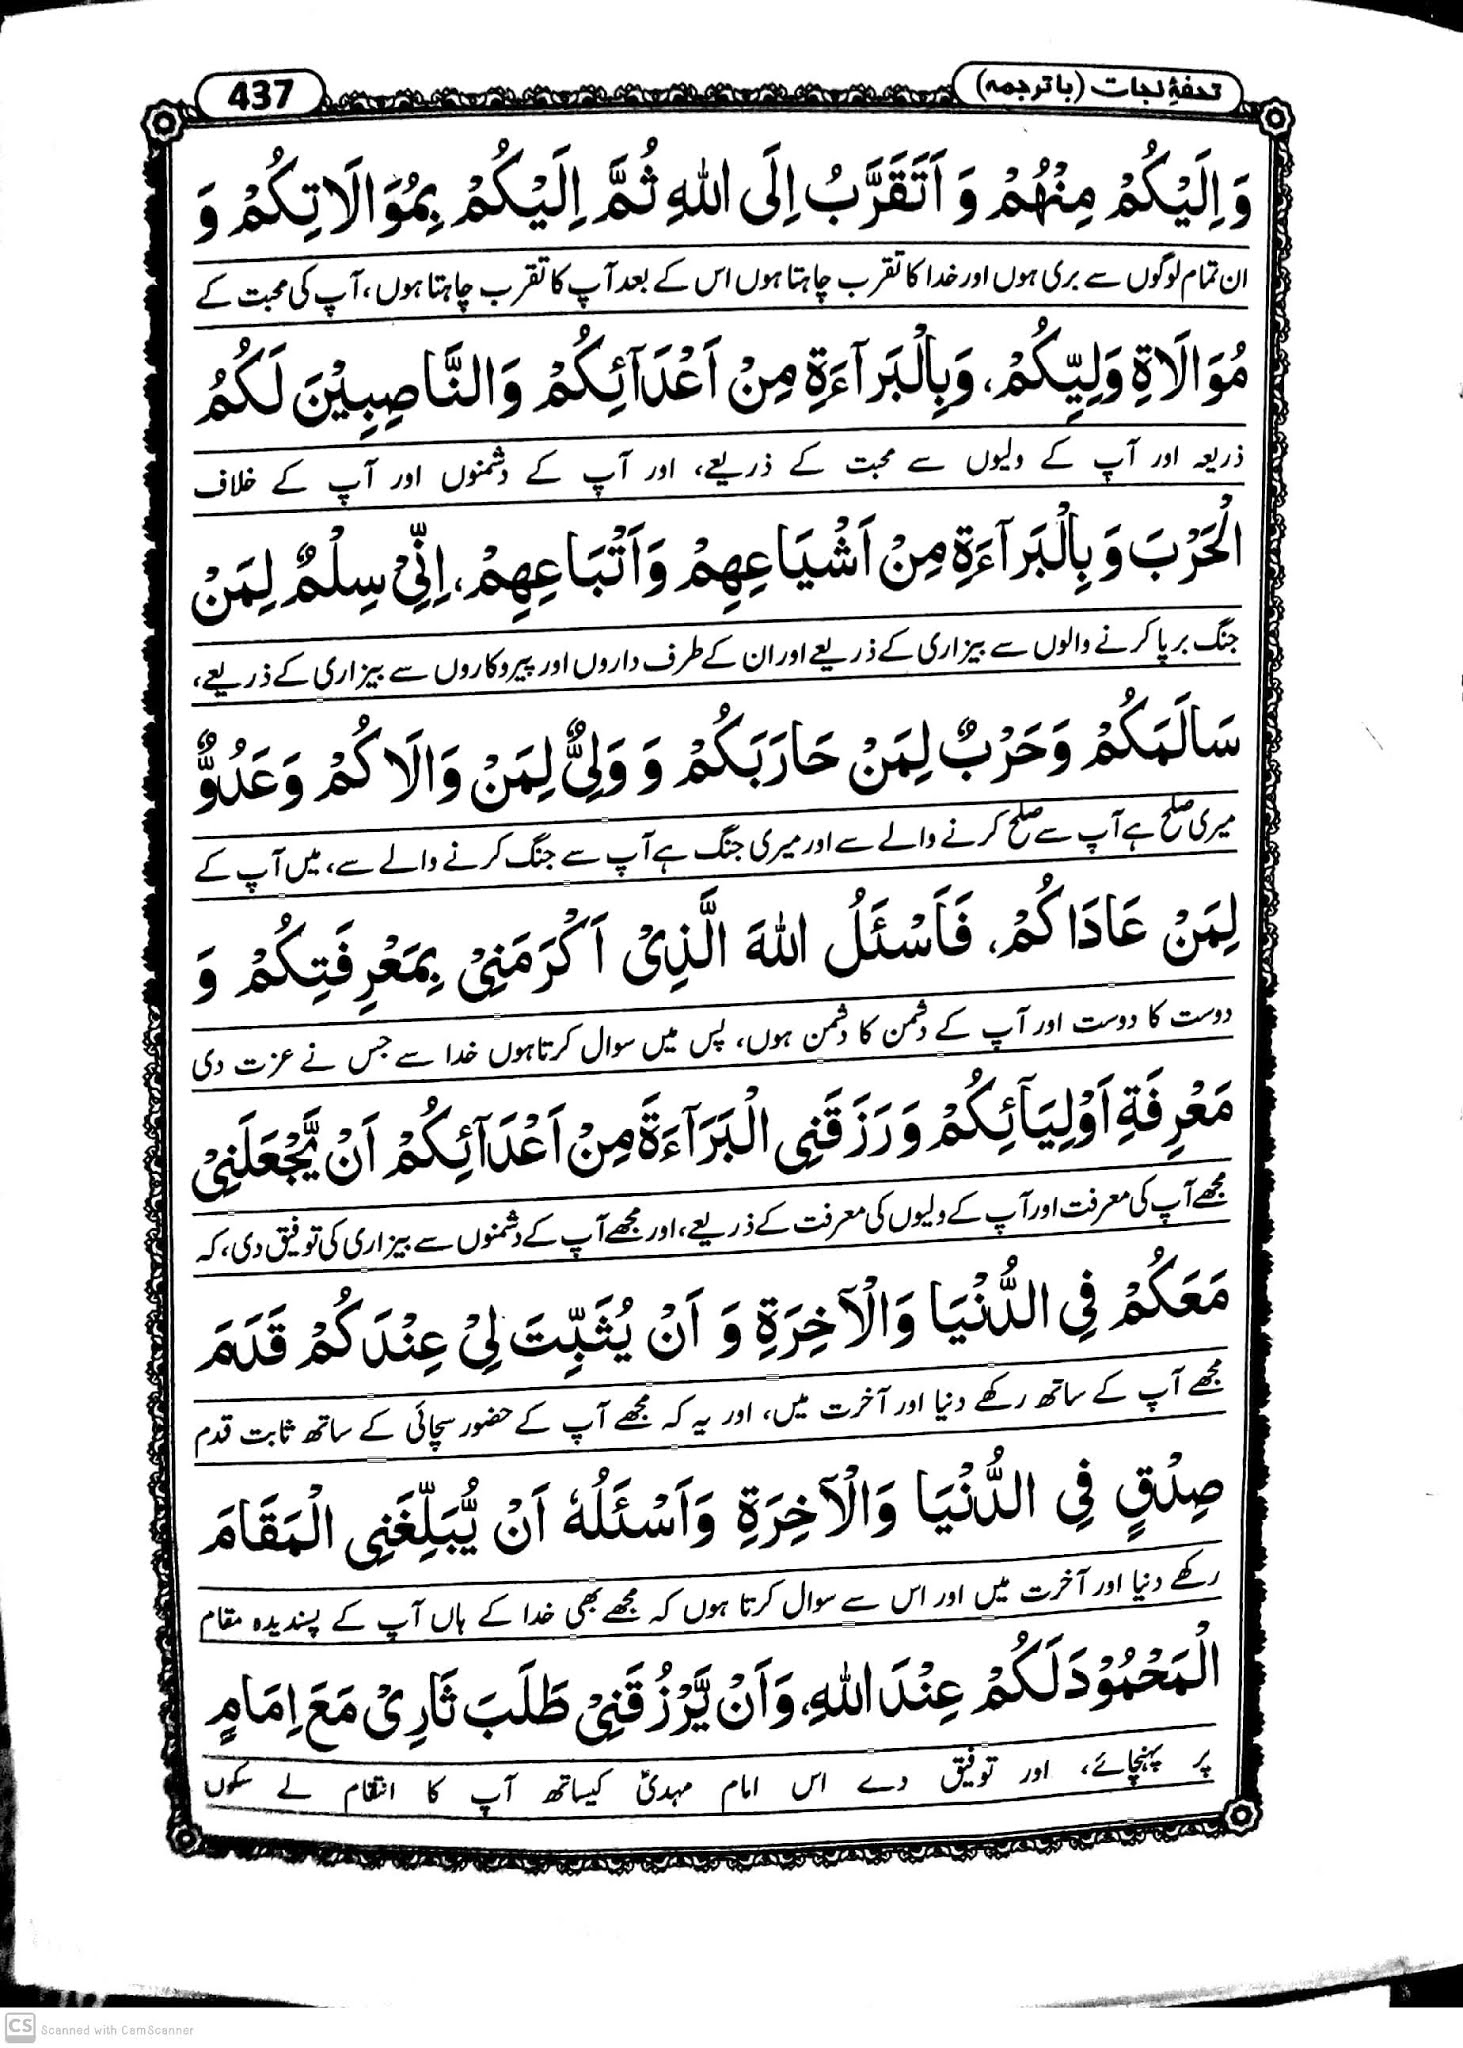 تحفۂ نجات (با ترجمہ)
437
وَ اِلَیْکُمْ مِنْہُمْ وَ اَتَقَرَّبُ اِلَی اللهِ ثُمَّ اِلَیْکُمْ بِمُوَالَاتِکُمْ وَ
ان تمام لوگوں سے بری ہوں اور خدا کا تقرب چاہتا ہوں اس کے بعد آپ کا تقرب چاہتا ہوں، آپ کی محبت کے
مُوَالَاةِ وَلِیِّکُمْ، وَبِالْبَرَآءَةِ مِنْ اَعْدَآئِکُمْ وَالنَّاصِبِیْنَ لَکُمُ
ذریعہ اور آپ کے ولیوں سے محبت کے ذریعے، اور آپ کے دشمنوں اور آپ کے خلاف
الْحَرْبَ وَ بِالْبَرَآءَةِ مِنْ اَشْیَاعِہِمْ وَاَتْبَاعِہِمْ، اِنِّیْ سِلْمٌ لِمَنْ
جنگ برپا کرنے والوں سے بیزاری کے ذریعے اور ان کے طرف داروں اور پیروکاروں سے بیزاری کے ذریعے،
سَالَمَکُمْ وَحَرْبٌ لِمَنْ حَارَبَکُمْ وَ وَلِیٌّ لِمَنْ وَالَاکُمْ وَعَدُوٌّ
میری صلح ہے آپ سے صلح کرنے والے سے اور میری جنگ ہے آپ سے جنگ کرنے والے سے، میں آپ کے
لِمَنْ عَادَاکُمْ، فَاَسْئَلُ اللهَ الَّذِیْ اَکْرَمَنِیْ بِمَعْرِفَتِکُمْ وَ
دوست کا دوست اور آپ کے دشمن کا دشمن ہوں، پس میں سوال کرتا ہوں خدا سے جس نے عزت دی
مَعْرِفَةِ اَوْلِیَآئِکُمْ وَرَزَقَنِی الْبَرَآءَةَ مِنْ اَعْدَآئِکُمْ اَنْ یَّجْعَلَنِیْ
مجھے آپ کی معرفت اور آپ کے ولیوں کی معرفت کے ذریعے، اور مجھے آپ کے دشمنوں سے بیزاری کی توفیق دی، کہ
مَعَکُمْ فِی الدُّنْیَا وَالْآخِرَةِ وَ اَنْ یُثَبِّتَ لِیْ عِنْدَکُمْ قَدَمَ
مجھے آپ کے ساتھ رکھے دنیا اور آخرت میں، اور یہ کہ مجھے آپ کے حضور سچائی کے ساتھ ثابت قدم
صِدْقٍ فِی الدُّنْیَا وَالْآخِرَةِ وَاَسْئَلُہٗ اَنْ یُّبَلِّغَنِی الْمَقَامَ
رکھے دنیا اور آخرت میں اور اس سے سوال کرتا ہوں کہ مجھے بھی خدا کے ہاں آپ کے پسندیدہ مقام
الْمَحْمُوْدَ لَکُمْ عِنْدَ اللهِ، وَاَنْ یَّرْزُقَنِیْ طَلَبَ ثَارِیْ مَعَ اِمَامٍ
پر پہنچائے، اور توفیق دے اس امام مہدیؑ کیساتھ آپ کا انتقام لے سکوں
CS Scanned with CamScanner